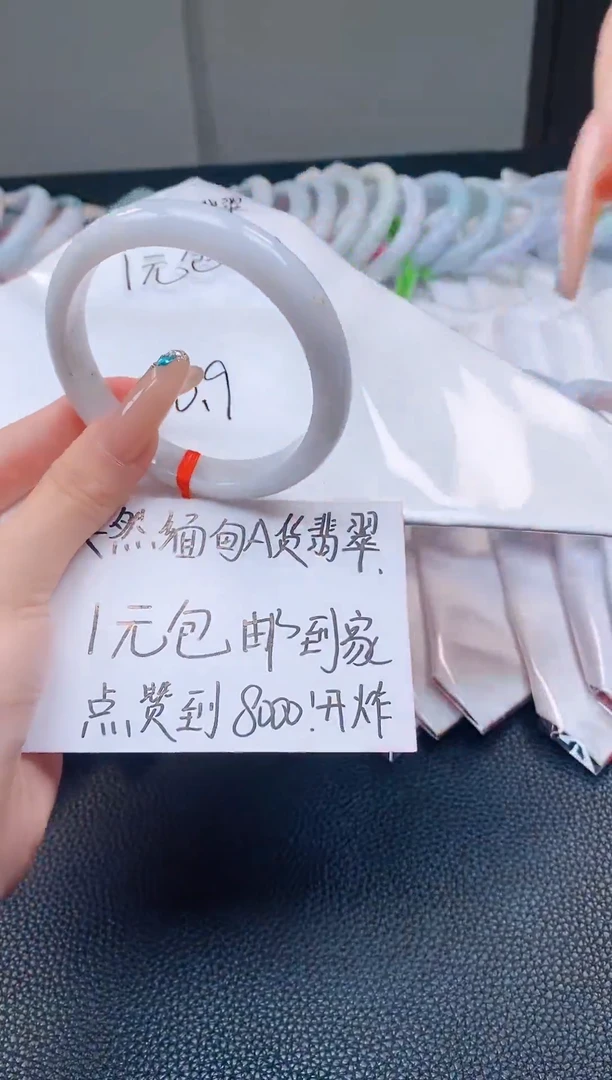 翠
1元包
0.9
然缅甸A货翡翠.
1元包邮到家
点赞到8000!开炸